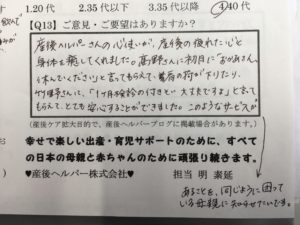 1.20代 2.35代以下 3.35代以降 ④40代
【Q13】ご意見・ご要望はありますか?
産後ヘルパーさんの心遣いが、産後の疲れた心と
身体を癒してくれました。高野さんに初日に「お母さん、
休んでくださいと言ってもらえて、肩の荷が下りたり、
竹里さんに、「1ヶ月検診の付きそい、大丈夫ですよ」と言って
もらえて、とても安心することができました。このようなサービスが
(産後ケア拡大目的で、産後ヘルパーブログに掲載場合があります。)
幸せで楽しい出産・育児サポートのために、すべて
の日本の母親と赤ちゃんのために頑張り続きます。
♥産後ヘルパー株式会社♥ 担当 明 素延
あることを、同じように困って
いる母親に知らせたいです。